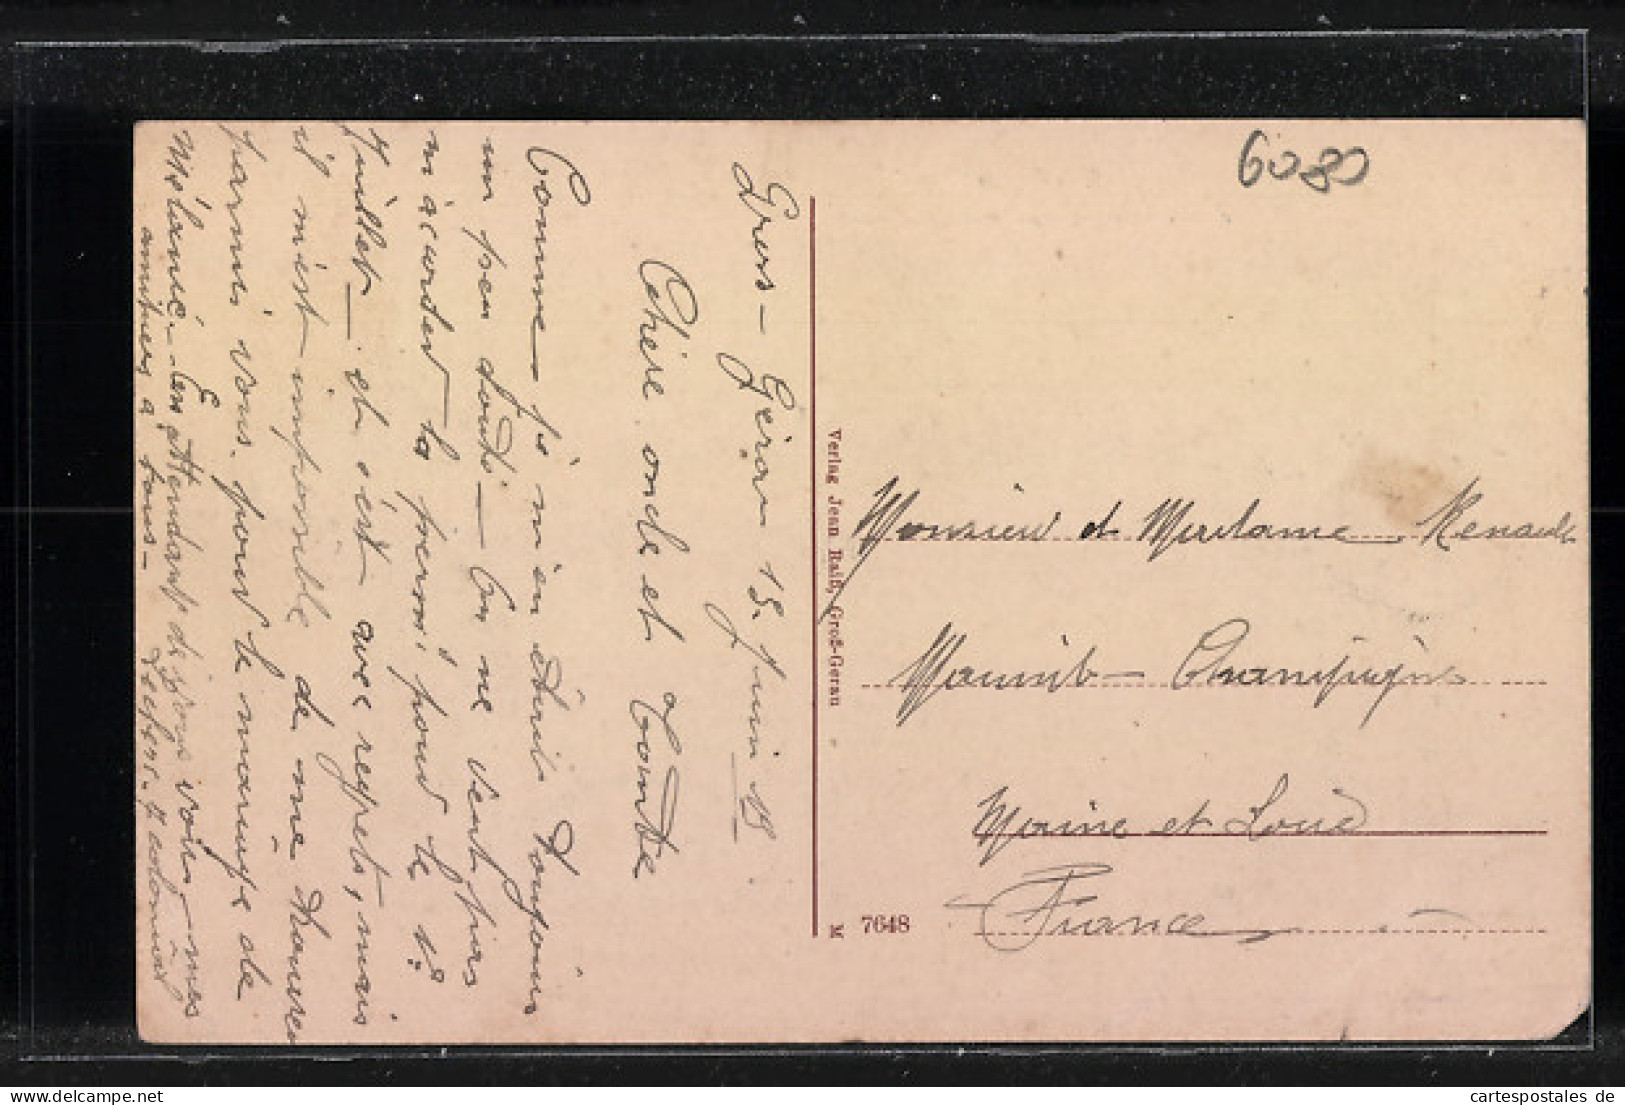 6080
Gross-Gérau 15. Juin 19
Chère oncle et Tante
Comme je m'en doute toujours
un peu doute - On ne veut pas
m'accorder la permi, pour le 1º
Juillet - et c'est avec regrets, mais
il m'est impossible de me trouver
parmi vous. pour le mariage de
Mélanie. - En attendant de vous voir - mes
amitiés a tous -
Verlag Jean Raiß, Groß-Gerau
M 7648
Monsieur et Madame Renault
Champagne
Maine et Loire
France
cartespostales de
www.cartespostales.de